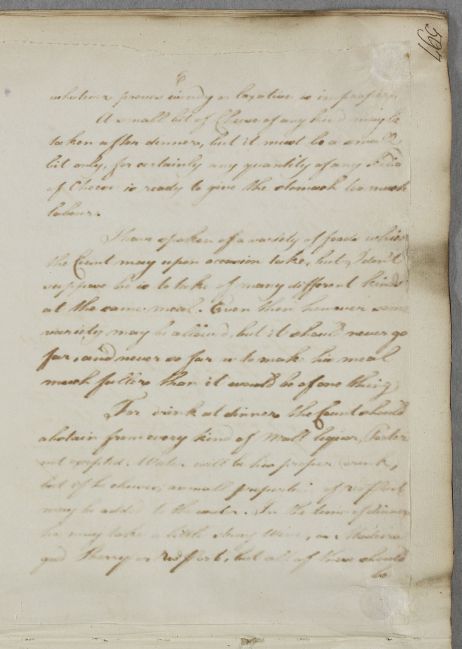 597
6
whatever proves windy or laxative is improper.
A small bit of Cheese of any kind may be
taken after dinner, but it must be a small
bit only, for certainly any quantity of any kind
of Cheese is ready to give the stomach too much
labour.
I have spoken of a variety of foods which
the Count may upon occasion take, but I don't
suppose he is to take of many different kinds
at the same meal. Even then however some
variety may be allowed, but it should never go
far, and never so far as to make his meal
much fuller than it would be of one thing.
For drink at dinner the Count should
abstain from every kind of Malt liquor, Porter
not excepted. Water will be his proper drink,
but if he chuses, a small proportion of red Port
may be added to the water. In the time of dinner
he may take a little strong Wine, as Madeira
good Sherry or red Port, but all of these should
be